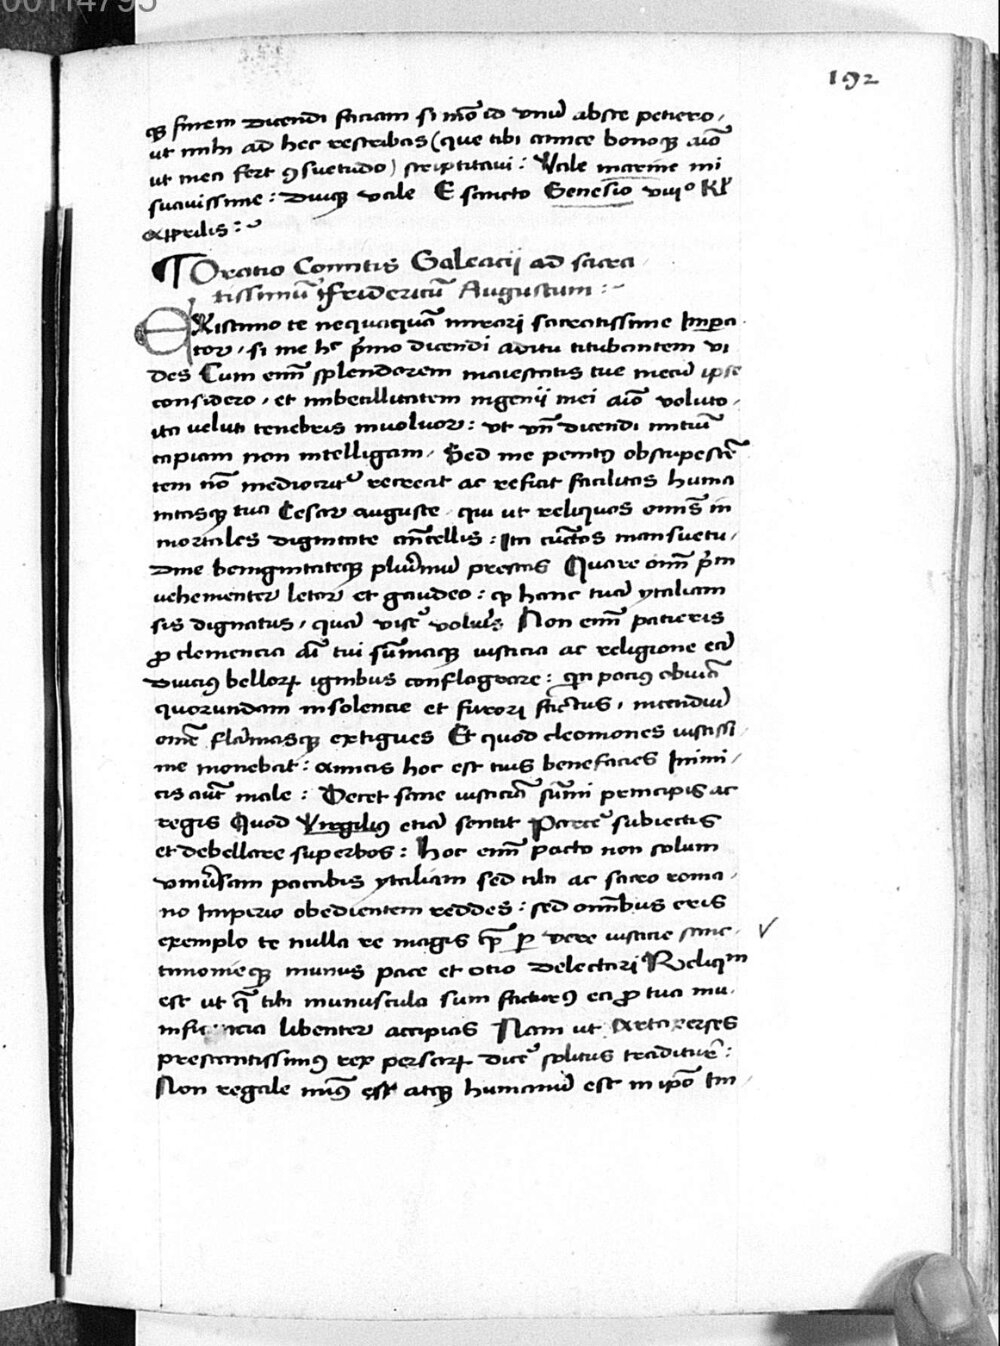 00114795
192
q̃ finem dicendi faciam si mō id vnū abste petiero /
ut mihi ad hec rescribas (que tibi amice bonoq̃ aīo
ut mea fert ꝯsuetudo) scriptitaui : Vale marine mi
suauissime : diuq̃ vale E sancto Genesio viiiº Kł
Aprilis :~
¶ Oratio Comitis Galeacij ad sacra
tissimū ffridericū Augustum :~
EXistimo te nequaquā mirari sacratissime Impera
tor / si me hº p̄mo dicendi aditu titubantem vi
des Cum enī splendorem maiestatis tue mecū ipse
considero / et imbecillitatem ingenij mei aīo voluto /
ita veluti tenebris inuoluor : vt vñ dicendi initiū
capiam non intelligam / Sed me penitꝰ obstupescē
tem nō mediocrit̾ recreat ac reficit facilitas huma
nitasq̃ tua Cesar auguste qui ut reliquos omīs in
mortales dignitate antecellis : Ita cūctos mansuetu /
dine benignitateq̃ plurimū prestas Quare omī p̄m
vehementer letor et gaudeo : ꝙ hanc tuā ytaliam
sis dignatus / quā vise̾ voluĩs Non enī patieris
ꝓ clemencia aī tui sūmaq̃ iusticia ac religione eā
diucius belloꝝ ignibus conflagrare : q̄n pocius obuiā
quorundam insolencie et furori factus / incendiū
omē flāmasq̃ extigues Et quod cleomones iustissi /
me monebat : amicis hoc est tuis benefacies Inimi /
cis aūt male : Decet sane iusticiā sūmi principis ac
regis Quod Virgiliꝰ etiā sentit Parce̾ subiectis
et debellare superbos : Hoc enī pacto non solum
vniūsam pacabis ytaliam sed tibi ac sacro roma /
no Imperio obedientem reddes : sed omībus eris
exemplo te nulla re magis q̄ꝫ ꝑ vere iusticie sanc /
timonieq̃ munus pace et otio delectari Reliqm
est ut q̄ tibi munuscula sum facturꝰ ea ꝓ tua mu /
libenter accipias Nam ut Artaxerses
prestantissimꝰ rex persaꝝ dice̾ solitus traditur :
Non regale miꝰ est atq̃ humanū est in ipō Im /